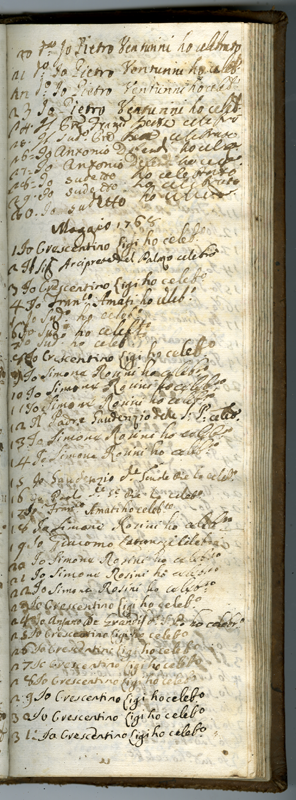 20 d.o Io Pietro Venturini ho celebrato
21 d.o Io Pietro Venturini ho celeb.o
22 d.o Io Pietro Venturini ho celeb.o
23 Io Pietro Venturini ho celeb.o
24. Io celebrato
25. Io celebrato
26. Io Antonio ho celeb.o
27. Io Antonio ho celeb.o
28. Io sudetto ho celebrato
29. Io sudetto ho celebrato
30. Io sudetto ho celeb.o
Maggio 1768
1 Io Crescentino Ligi ho celeb.o
2 Il Sig. Arciprete del Palazo celebrò
3 Io Crescentino Ligi ho celeb.o
4 Io Fran.o Amati ho celeb.o
5 Io Sud.o ho celeb.o
6 Io Sud.o ho celeb.o
7 Io Sud.o ho celeb.o
8 Io Crescentino Ligi ho celeb.o
9 Io Simone Rosini ho celeb.o
10 Io Simone Rosini ho celeb.o
11 Io Simone Rosini ho celeb.o
12 Il Padre Gaudenzio celeb.o
13 Io Simone Rosini ho celeb.o
14 Io Simone Rosini ho celeb.o
15 Io Gaudenzio celeb.o
16 celeb.o
17 Io Fran.o Amati ho celeb.o
18 Io Simone Rosini ho celeb.o
19 Io Giacomo celeb.o
20 Io Simone Rosini ho celeb.o
21 Io Simone Rosini ho celeb.o
22 Io Simone Rosini ho celeb.o
23 Io Crescentino Ligi ho celeb.o
24 Io ho celeb.o
25 Io Crescentino Ligi ho celeb.o
26 Io Crescentino Ligi ho celeb.o
27 Io Crescentino Ligi ho celeb.o
28 Io Crescentino Ligi ho celeb.o
29 Io Crescentino Ligi ho celeb.o
30 Io Crescentino Ligi ho celeb.o
31 Io Crescentino Ligi ho celeb.o